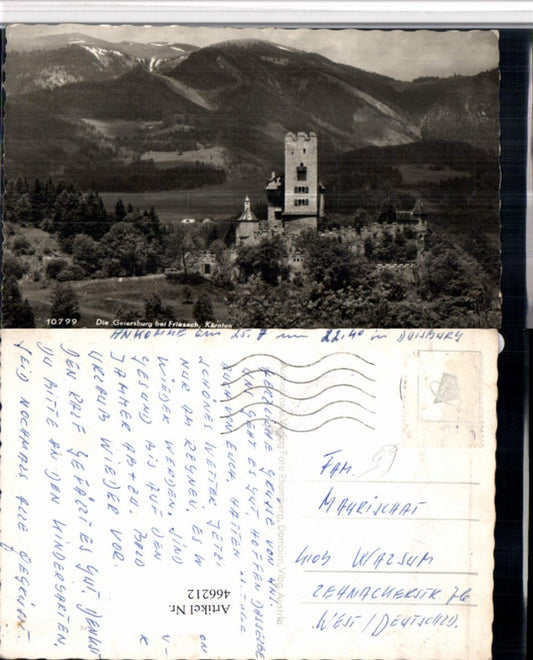 10799 Die Geiersburg bei Friesach, Kärnten
ANKOMME am 25. 7 um 22.40 in DUISBURG
HERZLICHE GRÜSSE VON UNS.
UNS GEHT ES GUT, HOFFEN DASSELBE
VON EUCH. HATTEN
SCHÖNES WETTER, JETZT
NUR AM REGNEN. ES
WIEDER WERDEN. SIND
GESUND BIS AUF DEN
JAMMER AB + ZU. BALD
URLAUB WIEDER VOR
DEN RALF GEFÄLLT ES GUT. DENKST
DU BITTE AN DEN KINDERGARTEN.
SEID NOCHMALS ALLE GEGRÜSST
FAM.
MAHRISCHAT
4103 WALSUM
ZEHNACKERSTR. 76
WEST/DEUTSCHLD.
Artikel Nr.
466212